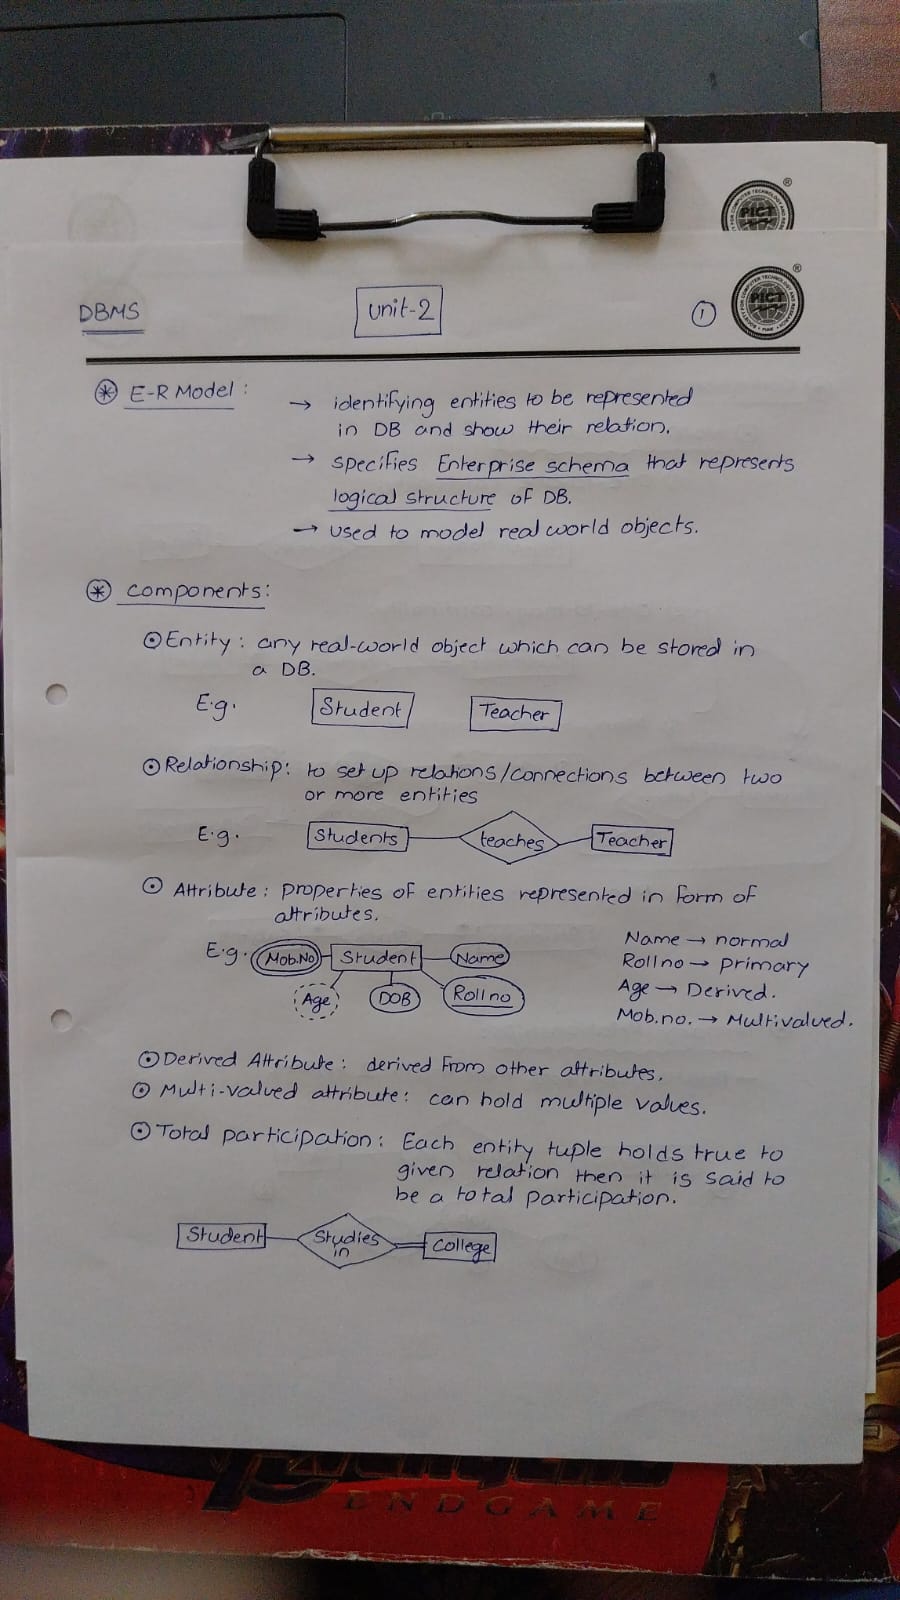 PICT
PICT
DBMS
unit-2
1
E-R Model :
→ identifying entities to be represented
in DB and show their relation.
→ specifies Enterprise schema that represents
logical structure of DB.
→ used to model real world objects.
components:
Entity : any real-world object which can be stored in
a DB.
E.g. Student Teacher
Relationship: to set up relations/connections between two
or more entities
E.g. Students teaches Teacher
Attribute : properties of entities represented in form of
attributes.
E.g. Mob.No Student Name
Age DOB Rollno
Name → normal
Rollno → primary
Age → Derived.
Mob.no. → Multivalued.
Derived Attribute : derived from other attributes.
Multi-valued attribute: can hold multiple values.
Total participation: Each entity tuple holds true to
given relation then it is said to
be a total participation.
Student Studies College
in
ENDGAME